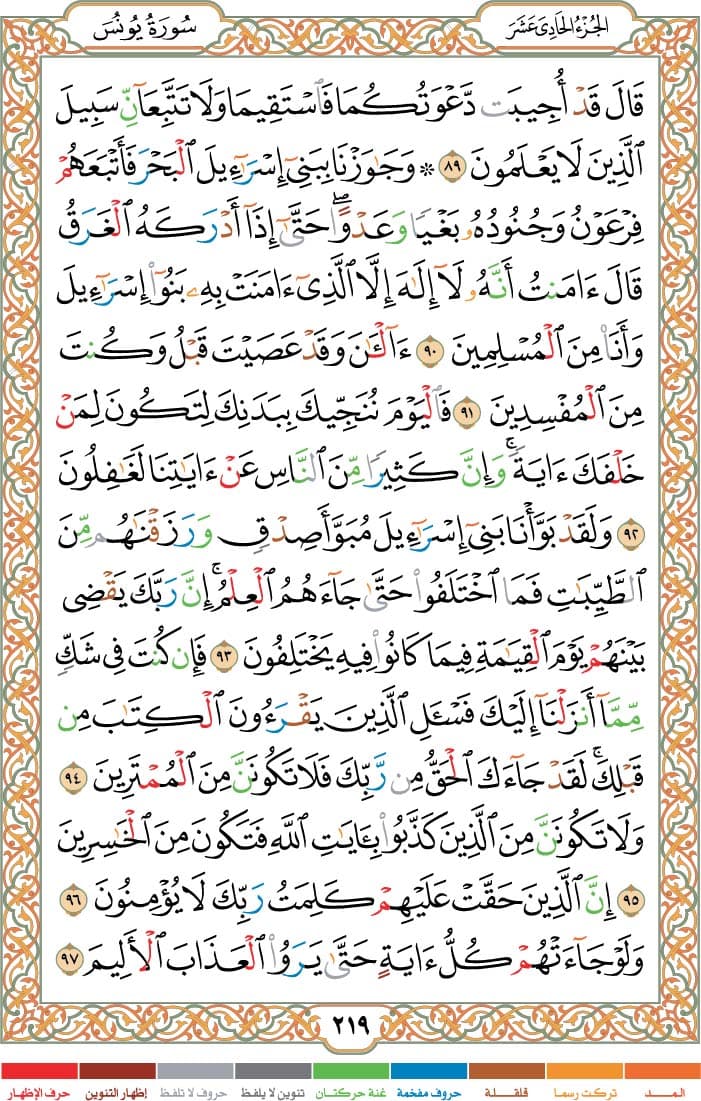 الجزء الحادى عشر
سورة يونس
قَالَ قَدْ أُجِيبَت دَّعْوَتُكُمَا فَٱسْتَقِيمَا وَلَا تَتَّبِعَآنِّ سَبِيلَ
ٱلَّذِينَ لَا يَعْلَمُونَ ٨٩ ۞ وَجَٰوَزْنَا بِبَنِىٓ إِسْرَٰٓءِيلَ ٱلْبَحْرَ فَأَتْبَعَهُمْ
فِرْعَوْنُ وَجُنُودُهُۥ بَغْيًا وَعَدْوًا ۖ حَتَّىٰٓ إِذَآ أَدْرَكَهُ ٱلْغَرَقُ
قَالَ ءَامَنتُ أَنَّهُۥ لَآ إِلَٰهَ إِلَّا ٱلَّذِىٓ ءَامَنَتْ بِهِۦ بَنُوٓا۟ إِسْرَٰٓءِيلَ
وَأَنَا۠ مِنَ ٱلْمُسْلِمِينَ ٩٠ ءَآلْـَٰٔنَ وَقَدْ عَصَيْتَ قَبْلُ وَكُنتَ
مِنَ ٱلْمُفْسِدِينَ ٩١ فَٱلْيَوْمَ نُنَجِّيكَ بِبَدَنِكَ لِتَكُونَ لِمَنْ
خَلْفَكَ ءَايَةً ۚ وَإِنَّ كَثِيرًا مِّنَ ٱلنَّاسِ عَنْ ءَايَٰتِنَا لَغَٰفِلُونَ
٩٢ وَلَقَدْ بَوَّأْنَا بَنِىٓ إِسْرَٰٓءِيلَ مُبَوَّأَ صِدْقٍ وَرَزَقْنَٰهُم مِّنَ
ٱلطَّيِّبَٰتِ فَمَا ٱخْتَلَفُوا۟ حَتَّىٰ جَآءَهُمُ ٱلْعِلْمُ ۚ إِنَّ رَبَّكَ يَقْضِى
بَيْنَهُمْ يَوْمَ ٱلْقِيَٰمَةِ فِيمَا كَانُوا۟ فِيهِ يَخْتَلِفُونَ ٩٣ فَإِن كُنتَ فِى شَكٍّ
مِّمَّآ أَنزَلْنَآ إِلَيْكَ فَسْـَٔلِ ٱلَّذِينَ يَقْرَءُونَ ٱلْكِتَٰبَ مِن
قَبْلِكَ ۚ لَقَدْ جَآءَكَ ٱلْحَقُّ مِن رَّبِّكَ فَلَا تَكُونَنَّ مِنَ ٱلْمُمْتَرِينَ ٩٤
وَلَا تَكُونَنَّ مِنَ ٱلَّذِينَ كَذَّبُوا۟ بِـَٔايَٰتِ ٱللَّهِ فَتَكُونَ مِنَ ٱلْخَٰسِرِينَ
٩٥ إِنَّ ٱلَّذِينَ حَقَّتْ عَلَيْهِمْ كَلِمَتُ رَبِّكَ لَا يُؤْمِنُونَ ٩٦
وَلَوْ جَآءَتْهُمْ كُلُّ ءَايَةٍ حَتَّىٰ يَرَوُا۟ ٱلْعَذَابَ ٱلْأَلِيمَ ٩٧
٢١٩
المـــد تركت رسما قلقـــلة حروف مفخمة غنة حركتـان تنوين لا يلفظ حروف لا تلفظ إظهار التنوين حرف الإظهار